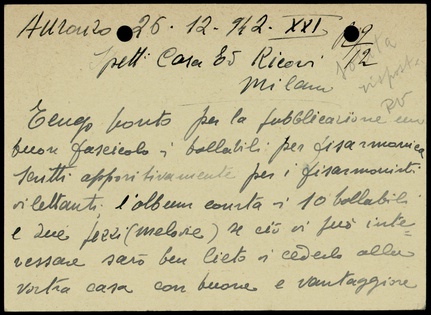 Auronzo 26 · 12 - 942 - XXI
29/12
Spett. Casa Ed Ricordi
Milano
risposta
Tengo pronto per la pubblicazione un
buon fascicolo di ballabili per fisarmonica
scritti appositivamente per i fisarmonisti
dilettanti. l'album consta di 10 ballabili
e due pezzi (melodie) se ciò vi può inte=
ressare sarò ben lieto di cederlo alla
vostra casa con buone e vantaggiose